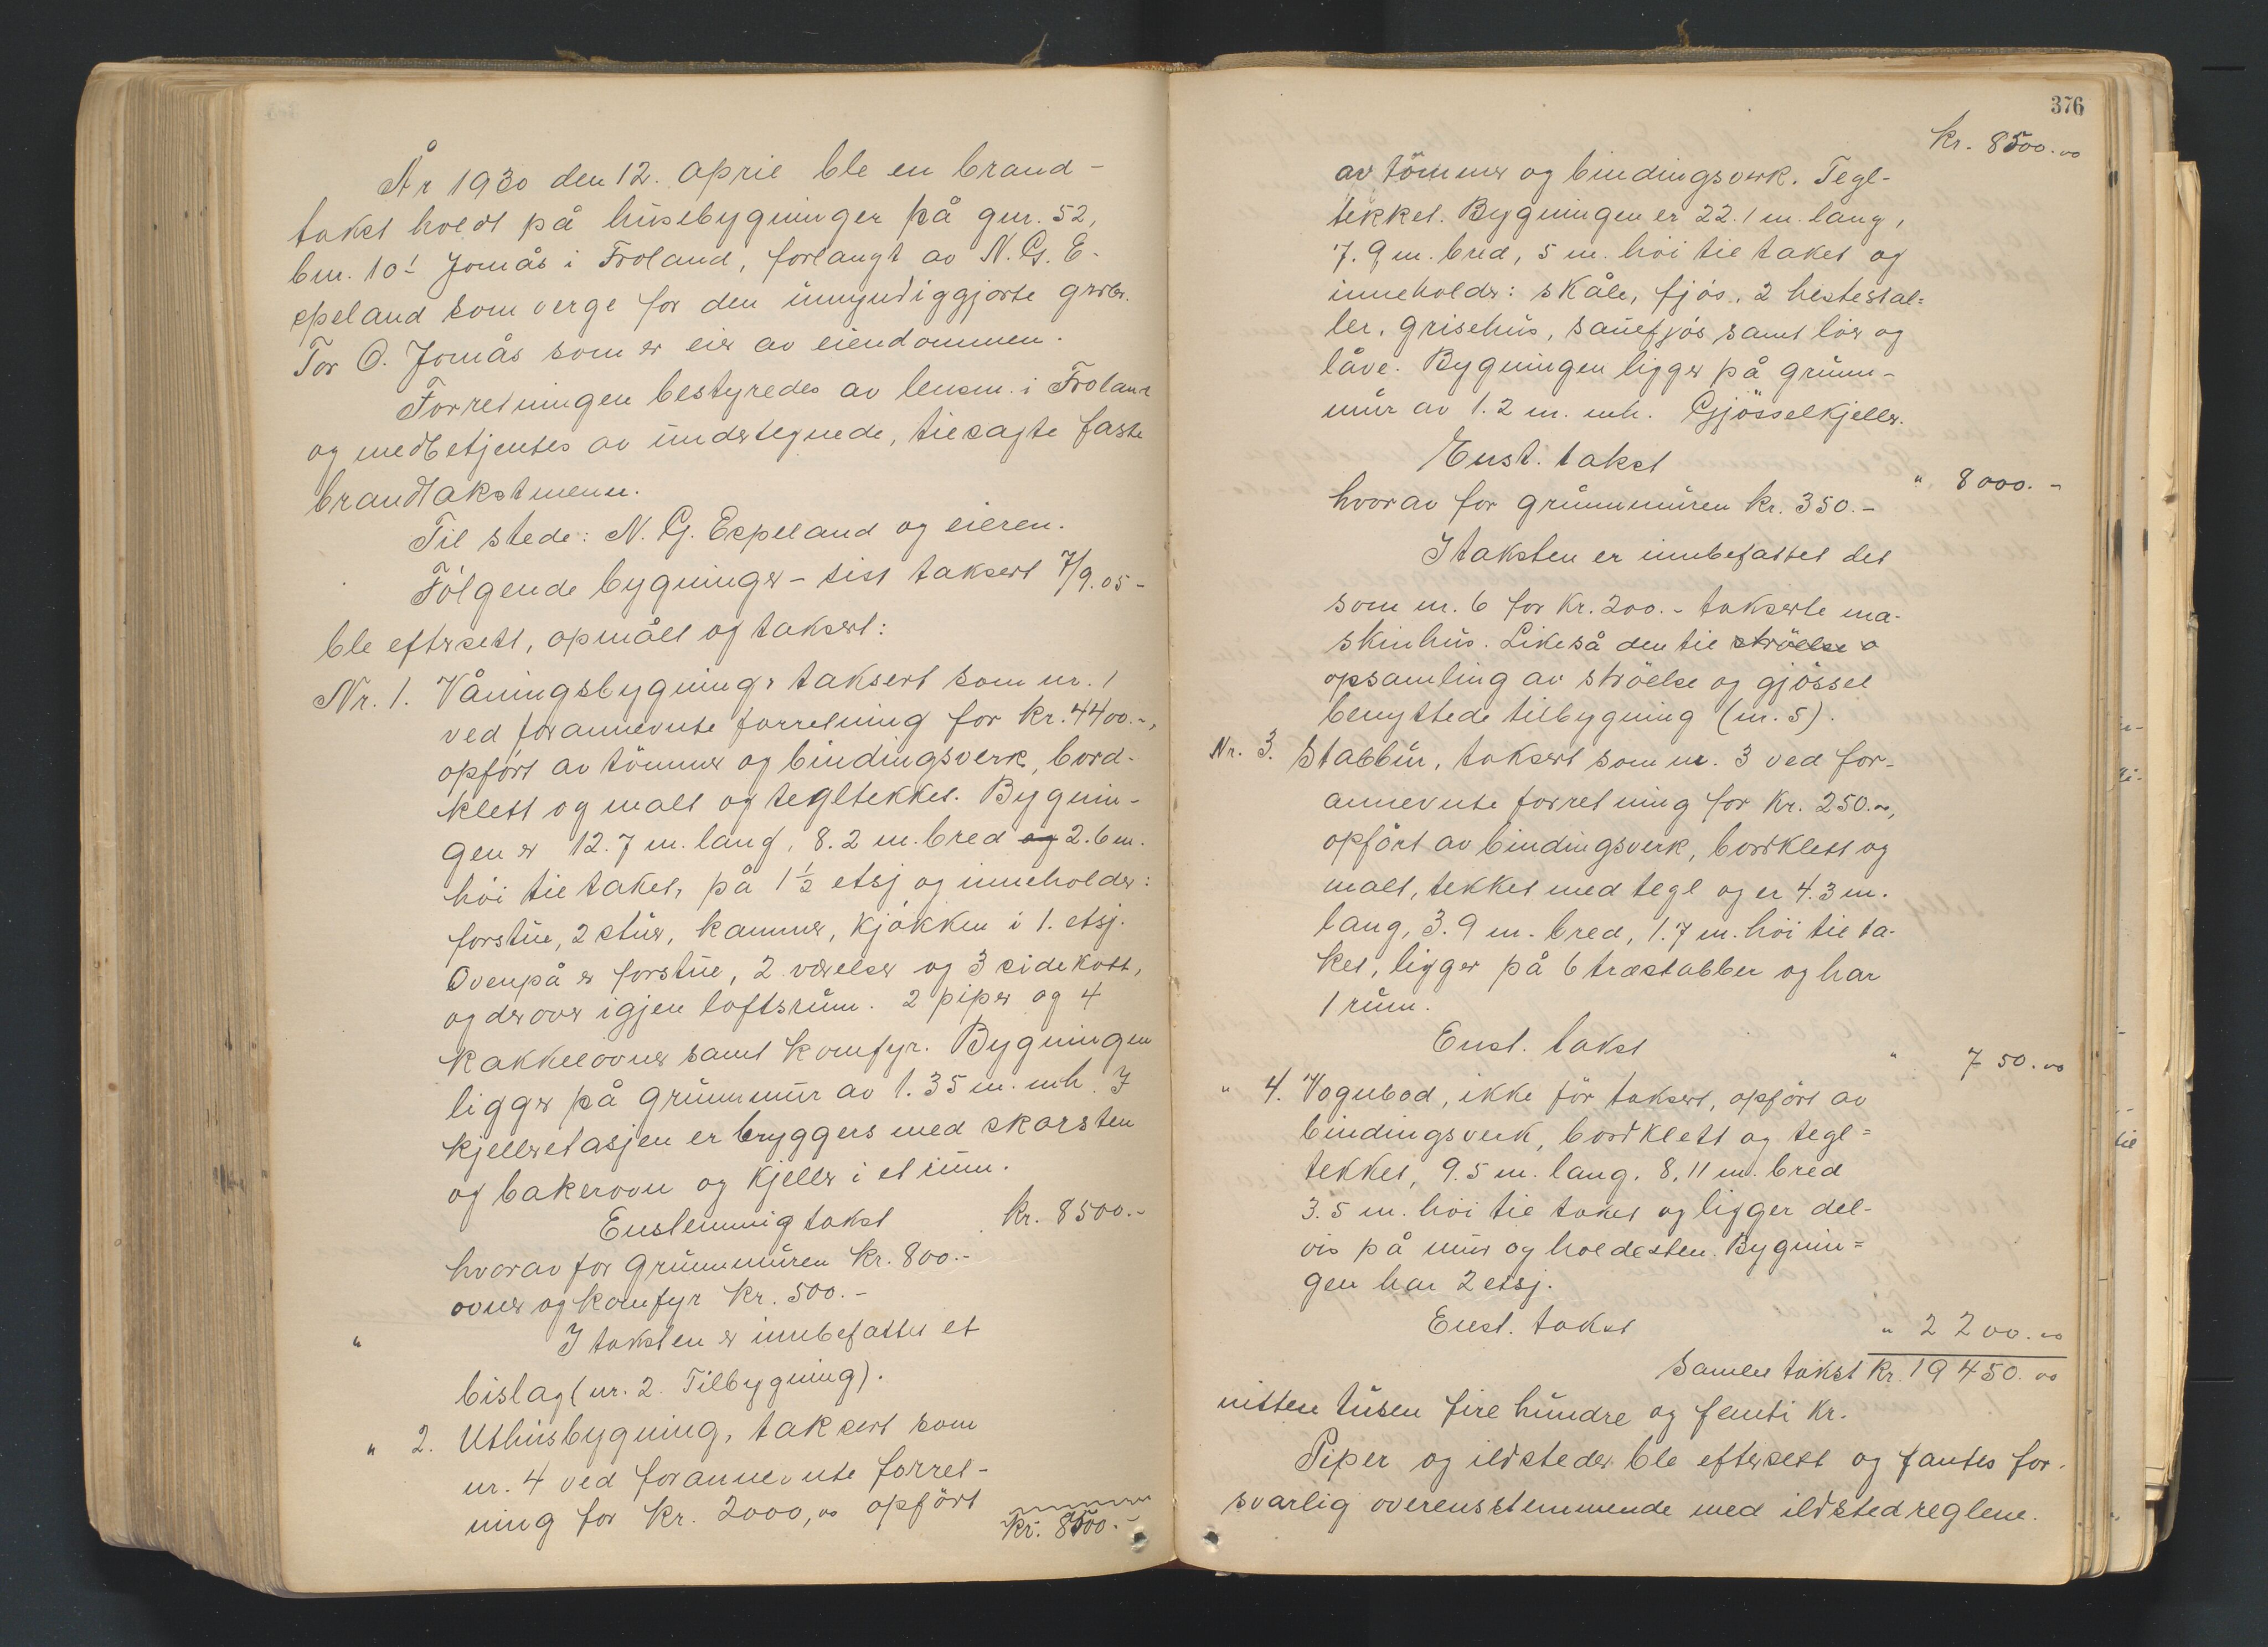 År 1930 den 12. april ble en brand-
takst holdt på husebygninger på gnr. 52,
bnr. 10! Jomås i Froland, forlangt av N. G. E-
speland som verge for den umyndiggjorte grdbr.
Tor O. Jomås som er eier av eiendommen.
Forretningen bestyredes av lensm. i Froland
og medbetjentes av undertegnede, tilsagte faste
brandtakstmenn.
Til stede: N. G. Espeland og eieren.
Følgende bygninger - sist taksert 7/9.05 -
ble eftersett, opmålt og taksert:
Nr. 1. Våningsbygning, taksert som nr. 1
ved forannevnte forretning for kr. 4400.-,
opført av tømmer og bindingsverk, bord-
klett og malt og tegltekket. Bygnin-
gen er 12.7 m. lang, 8.2 m. bred og 2.6 m.
høi til taket, på 1½ etsj og inneholder:
forstue, 2 stuer, kammer, kjøkken i 1. etsj.
Ovenpå er forstue, 2 værelser og 3 sidekott,
og derover igjen loftsrum. 2 piper og 4
kakkelovner samt komfyr. Bygningen
ligger på grunnmur av 1.35 m. mh. I
kjelleretasjen er bryggers med skorsten
og bakerovn og kjeller i et rum.
Enstemmig takst kr. 8500.-
hvorav for grunnmuren kr. 800.-
ovner og komfyr kr. 500.-
" I taksten er innbefattet et
bislag (nr. 2. Tilbygning).
" 2. Uthusbygning, taksert som
nr. 4 ved forannevnte forret-
ning for kr. 2000,00 opført
kr. 8500.-
376
kr. 8500.00
av tømmer og bindingsverk. Tegl-
tekket. Bygningen er 22.1 m. lang,
7.9 m. bred, 5 m. høi til taket og
inneholder: skåle, fjøs, 2 hestestal=
ler, grisehus, sauefjøs samt løer og
låve. Bygningen ligger på grunn-
mur av 1.2 m. mh. Gjødselkjeller.
Enst. takst " 8000.-
hvorav for grunnmuren kr. 350.-
I taksten er innbefattet det
som nr. 6 for kr. 200.- takserte ma-
skinhus. Likeså den til strøelse o
opsamling av strøelse og gjødsel
benyttede tilbygning (nr. 5).
Nr. 3. Stabbur, taksert som nr. 3 ved for-
annevnte forretning for kr. 250.-,
opført av bindingsverk, bordklett og
malt, tekket med tegl og er 4.3 m.
lang, 3.9 m. bred, 1.7 m. høi til ta-
ket, ligger på 6 træstabber og har
1 rum.
Enst. takst " 750.00
" 4. Vognbod, ikke før taksert, opført av
bindingsverk, bordklett og tegl=
tekket, 9.5 m. lang, 8,11 m. bred
3.5 m. høi til taket og ligger del-
vis på mur og holdesten. Bygnin=
gen har 2 etsj.
Enst. takst " 2200.00
Samlet takst kr. 19450.00
nitten tusen fire hundre og femti kr.
Piper og ildsteder ble eftersett og fantes for-
svarlig overensstemmende med ildstedreglene.